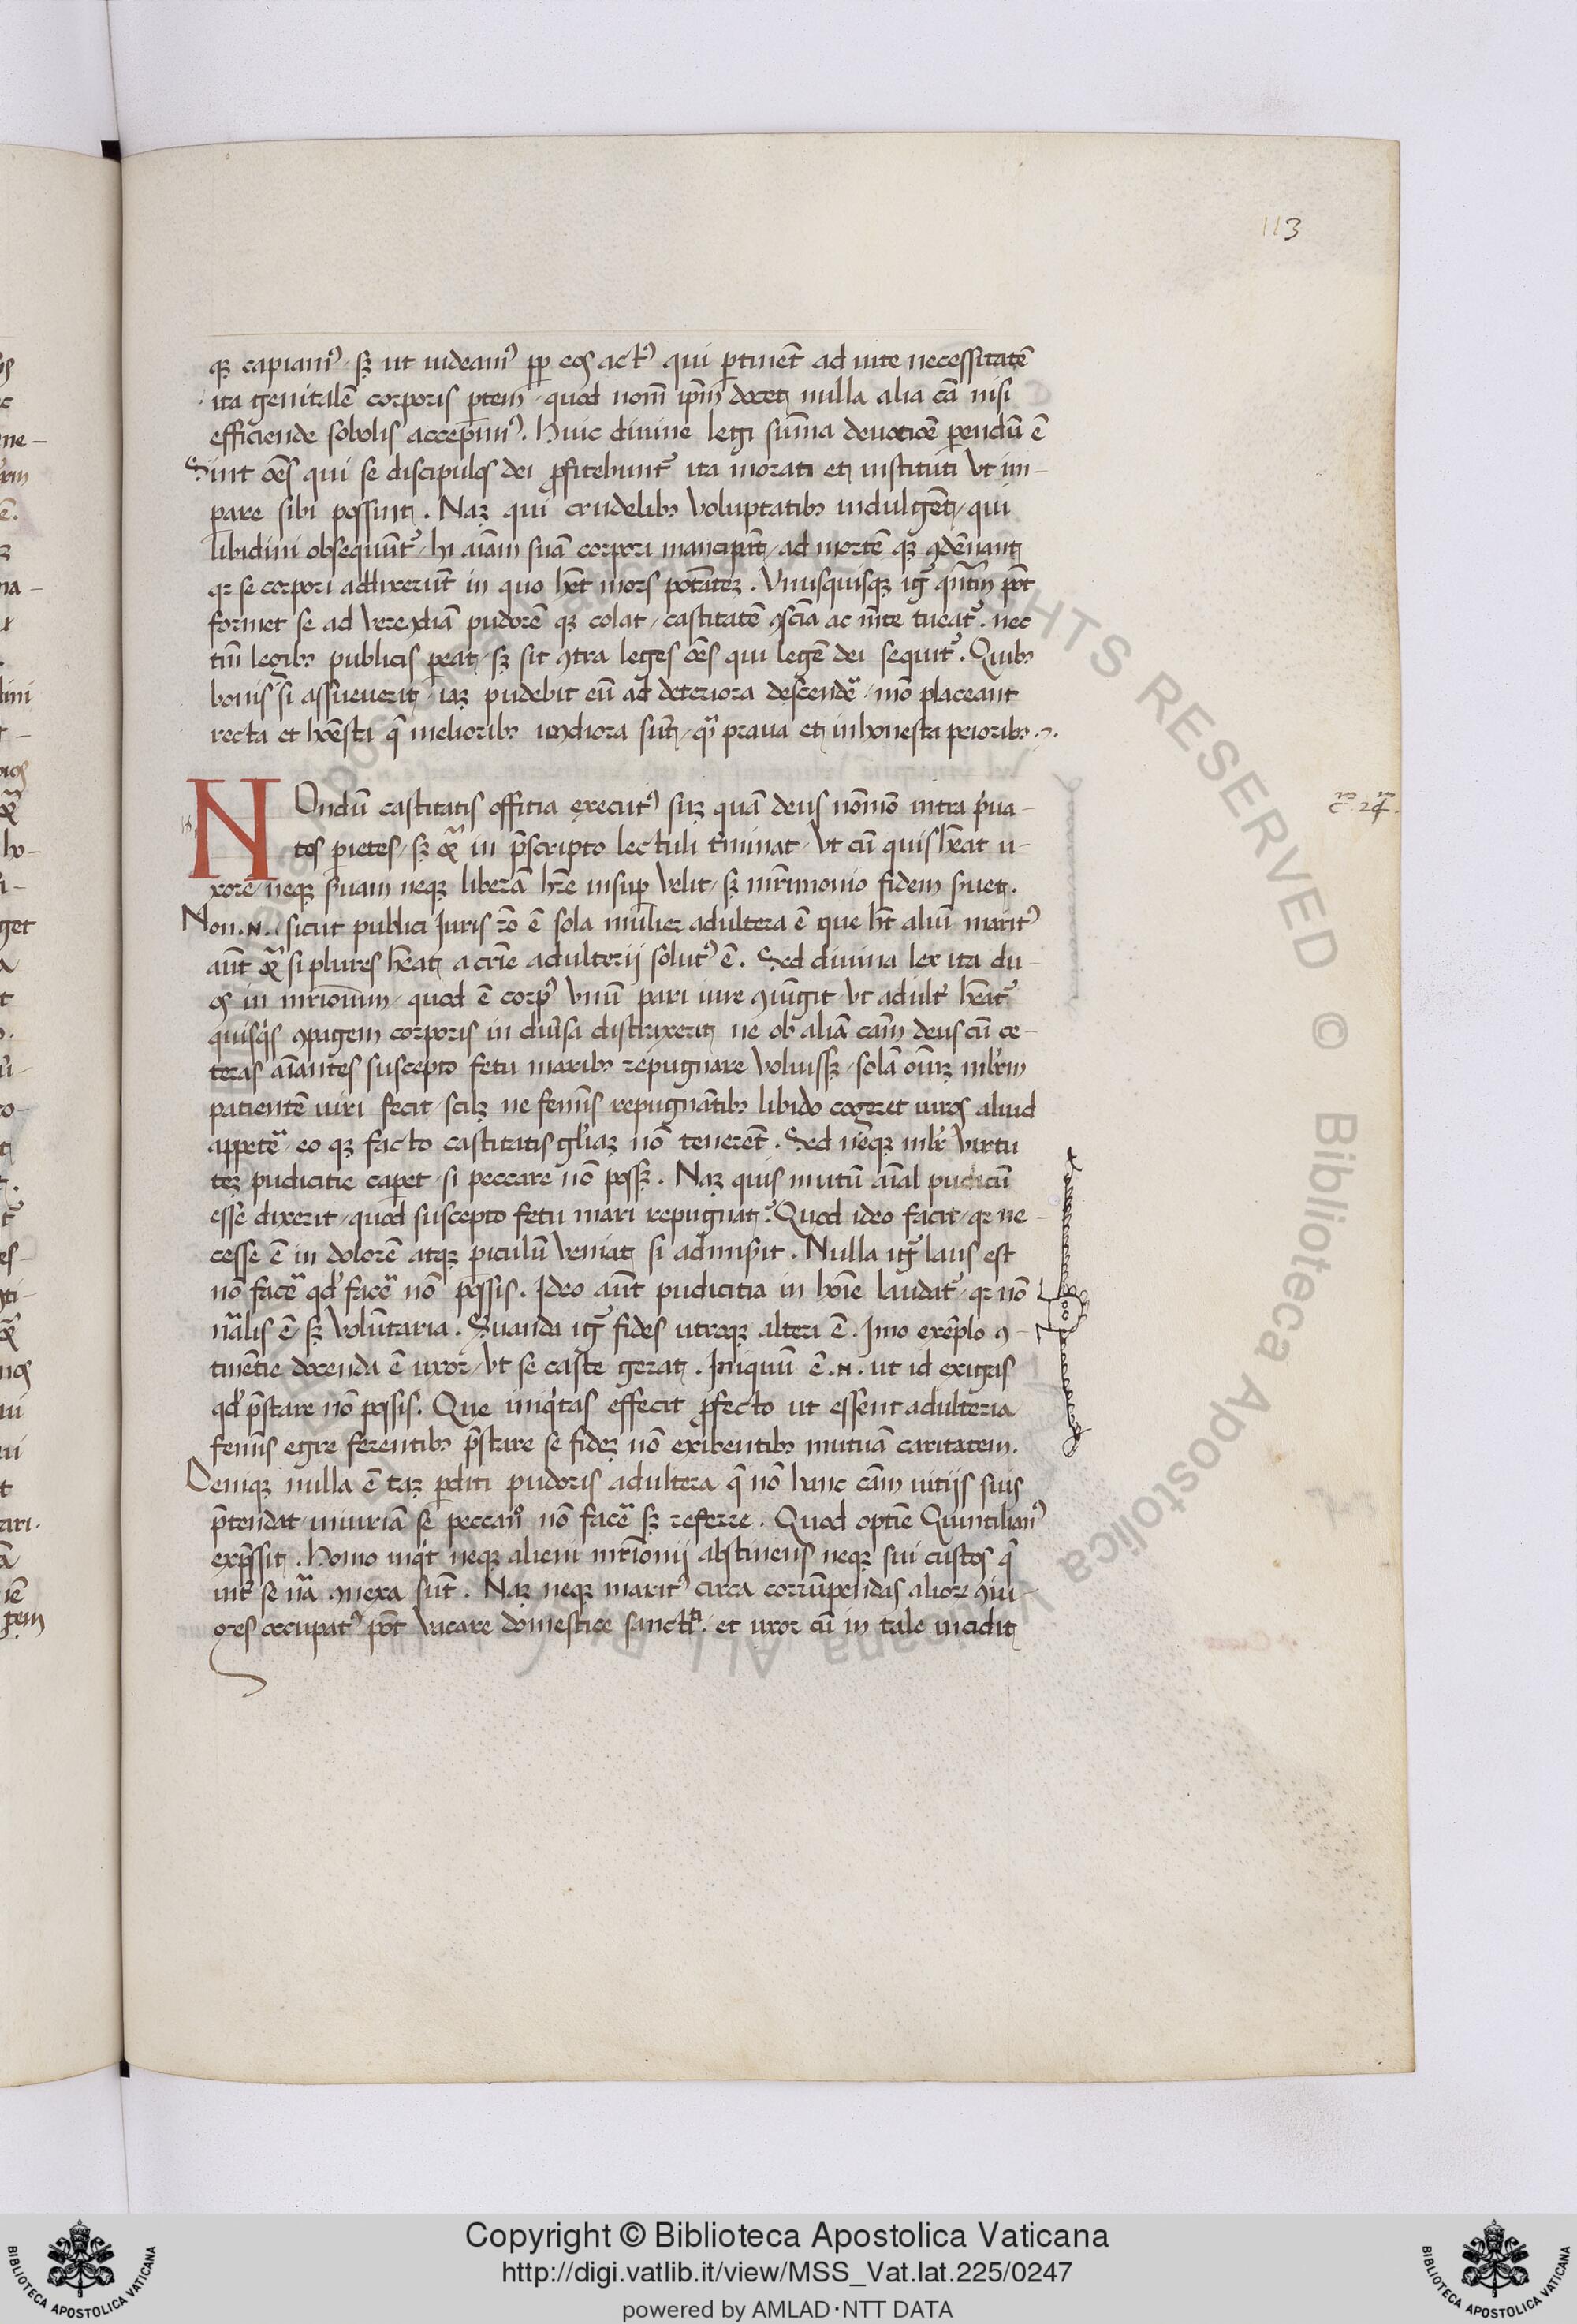 113
qꝫ capiamꝰ / sꝫ ut uideamꝰ ꝓp eos actꝰ qui ꝑtinēt ad uite necessitatē
ita genitalē corporis ꝑtem / quod nom̄ ip̄m docet nulla alia cā nisi
efficiende sobolis accepimꝰ. Huic diuine legi sum̄a deuotiōe parendū ē
Sint oēs qui se discipulos dei ꝓfitebunt᷑ ita morati et instituti vt im-
pare sibi possint. Naꝫ qui crudelibꝫ voluptatibꝫ indulgēt / qui
libidini obsequūt᷑ / hi aīam suā corpori mancipāt / ad mortē qꝫ ꝯdēnant
qꝛ se corpori addixerūt in quo hēt mors potātēꝫ. Vnusquisqꝫ ig̃ q̄ntm̄ pōt
formet se ad verecūdiā pudorē qꝫ colat / castitatē ꝯsciā ac mēte tueat᷑. nec
tm̄ legibꝫ publicis pareat / sꝫ sit ꝯtra leges oēs qui legē dei sequit᷑. Quibꝫ
bonis si assueuerit / iaꝫ pudebit eū ad deteriora descendē᷑ / mō placeant
recta et hoēsta q̄ melioribꝫ iucūdiora sūt / q̄ praua et inhonesta peioribꝫ.
Nondū castitatis offitia executꝰ suꝫ quā deus nō mō intra p̄ua-
tos pietes / sꝫ &̄ in p̄scripto lectuli t̄minat / vt cū quis hēat u-
xorē / neqꝫ ẜuam neqꝫ liberā hr̄e insuꝑ velit / sꝫ mr̄imonio fidem ẜuet.
Non.n. sicut publici Iuris rō ē sola mulier adultera ē que hēt aliū maritꝰ
aūt &̄ si plures hēat a crīe adulterij solutꝰ ē. Sed diuina lex ita du-
os in mr̄ioniuм / quod ē corpꝰ vnū pari iure ꝯiūgit / vt adult̄ hēat᷑
quisq̇s ꝯpagem corporis in diūsa distrixerit ne ob aliā cām deus cū ce-
teras aīantes suscepto fetu maribꝫ repugnare voluissꝫ / solā oīuꝫ mlr̄em
patientē uiri fecit / scilꝫ ne femīs repugnātibꝫ libido cogeret uiros aliud
appetē᷑ / eo qꝫ facto castitatis gl̄iaꝫ nō tenerēt. Sed neqꝫ mlr̄ virtu
teꝫ pudicitie caꝑet / si peccare nō possꝫ. Naꝫ quis mutū aīal pudicū
esse dixerit / quod suscepto fetu mari repugnat? Quod ideo facit / qꝛ ne-
cesse ē in dolorē atqꝫ ꝑiculū veniat si admiserit. Nulla ig̃ laus est
nō facē᷑ qd̓ facē᷑ nō possis. Ideo aūt pudicitia in hoīe laudat᷑ / qꝛ nō
nālis ē / sꝫ volūtaria. Seruanda ig̃ fides utroqꝫ alteri ē. Imo exēplo ꝯ-
tinētie docenda ē uxor / vt se caste gerat. Iniquū ē.n. ut id exigas
qd̓ p̄stare nō possis. Que iniq̇tas effecit ꝓfecto ut essent adulteria
femīs egre ferentibꝫ p̄stare se fideꝫ nō exibentibꝫ mutuā caritatem.
Deniqꝫ nulla ē taꝫ ꝑditi pudoris adultera q̄ nō hanc cām uitijs suis
p̄tendat / iniuriā se peccando nō facē᷑ sꝫ referre. Quod optīe Quintilianꝰ
exp̄ssit. Homo inq̇t neqꝫ alieni mr̄ionij abstinens neqꝫ sui custos q̄
int̄ se nā ꝯnexa sūt. Naꝫ neqꝫ maritꝰ circa corrūpendas alioꝝ ꝯiu-
ges occupatꝰ pōt vacare domestice sanctti. et uxor cū in tale incidit
Copyright © Biblioteca Apostolica Vaticana
http://digi.vatlib.it/view/MSS_Vat.lat.225/0247
powered by AMLAD·NTT DATA